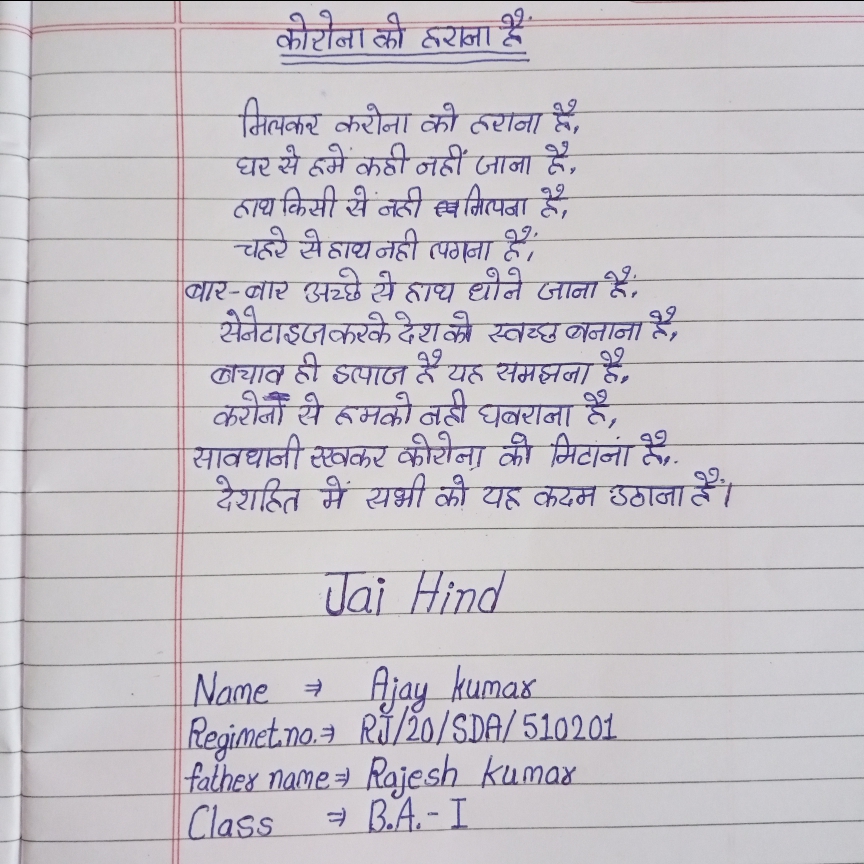 कोरोना को हराना हैं
मिलकर करोना को हराना है,
घर से हमें कही नहीं जाना है,
हाथ किसी से नही मिलना है,
चहरे से हाथ नही लगना हैं,
बार-बार अच्छे से हाथ धोने जाना हैं,
सेनेटाइज करके देश को स्वच्छ बनाना है,
बचाव ही इलाज है यह समझना है,
करोना से हमको नही घबराना है,
सावधानी रखकर कोरोना को मिटाना है,
देशहित में सभी को यह कदम उठाना हैं।
Jai Hind
Name ⇒ Ajay kumar
Regimet.no.⇒ RJ/20/SDA/510201
father name⇒ Rajesh kumar
Class ⇒ B.A.-I